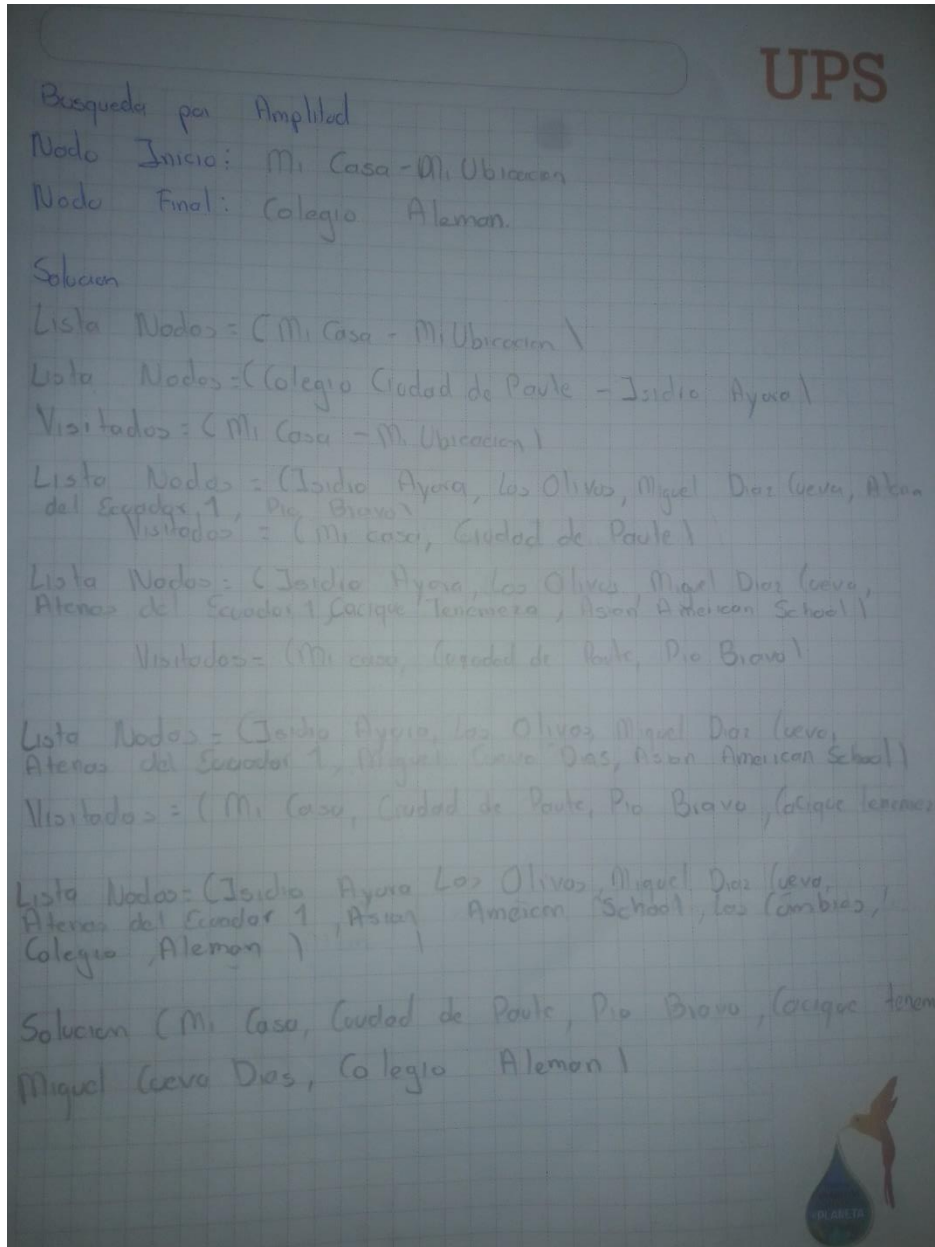 UPS
Busqueda por Amplitod
Nodo Inicio: Mi Casa - Mi Ubicacion
Nodo Final: Colegio Aleman.
Solucion
Lista Nodos = (Mi Casa - Mi Ubicacion)
Lista Nodos = (Colegio Ciudad de Paute - Isidro Ayora)
Visitados = (Mi Casa - Mi Ubicacion)
Lista Nodos = (Isidro Ayora, Los Olivos, Miguel Diaz Cueva, Aten
del Ecuador 1, Pio Bravo)
Visitados = (Mi casa, Ciudad de Paute)
Lista Nodos = (Isidro Ayora, Los Olivos, Miguel Diaz Cueva,
Atenas del Ecuador 1 Cacique Tenemeza, Asian American School)
Visitados = (Mi casa, de Paute, Pio Bravo)
Lista Nodos = (Isidro Ayora, Los Olivos, Miguel Diaz Cueva,
Atenas del Ecuador 1, Miguel Cueva Dias, Asian American School)
Visitados = (Mi Casa, Ciudad de Paute, Pio Bravo, Cacique tenemez
Lista Nodos = (Isidro Ayora Los Olivos, Miguel Diaz Cueva,
Atenas del Ecuador 1, Asian American School, Los Cambios,
Colegio Aleman)
Solucion (Mi Casa, Ciudad de Paute, Pio Bravo, Cacique tenem
Miguel Cueva Dias, Colegio Aleman)
PLANETA